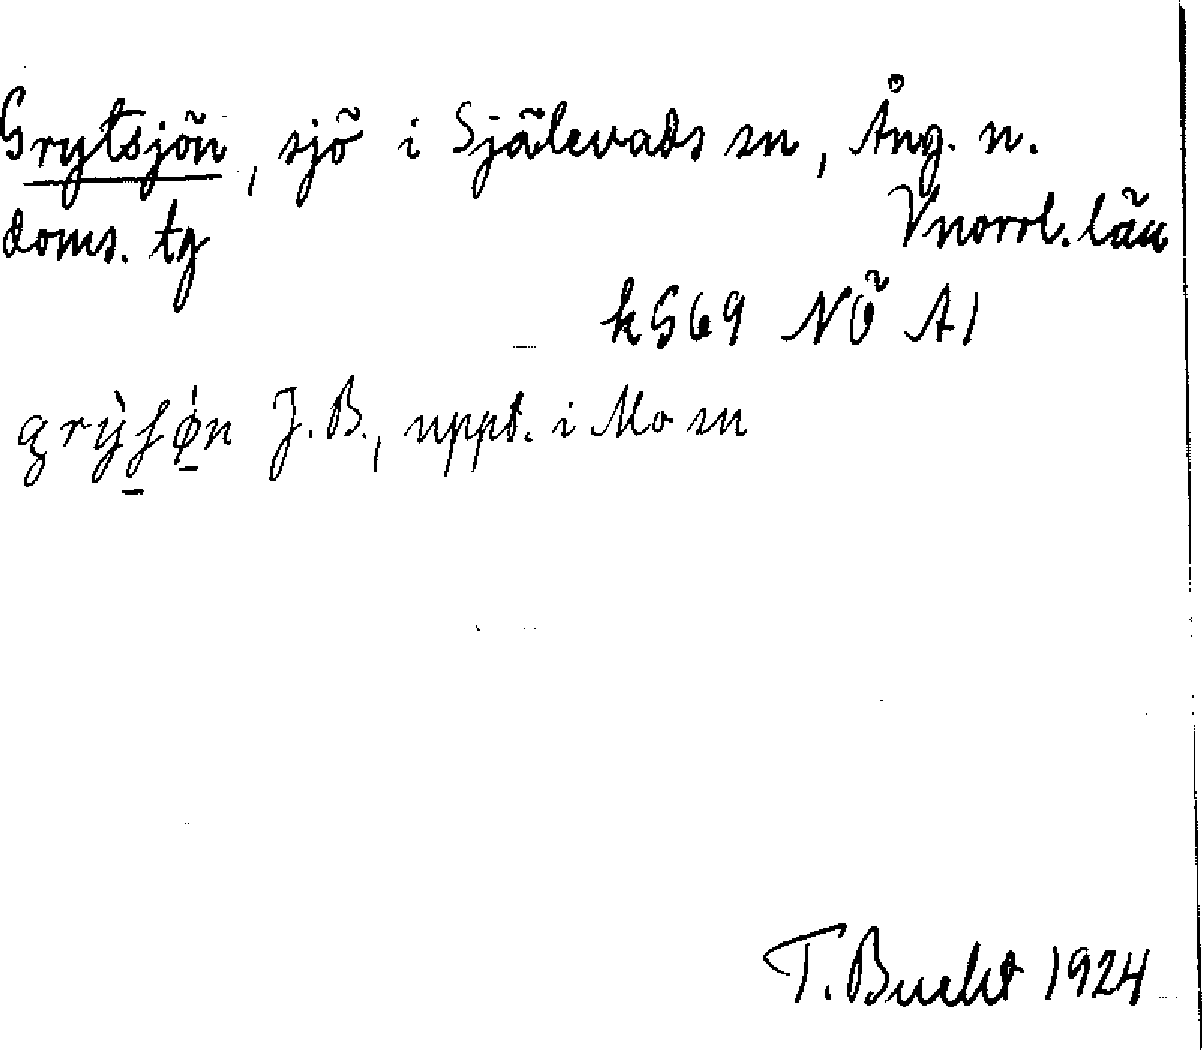 Grytsjön, sjö i Själevads sn, Ång. n.
doms. tg Vnorrl. län
k 569 NÖ A1
grỳʃǿn J. B., uppt. i Mo sn
T. Bucht 1924